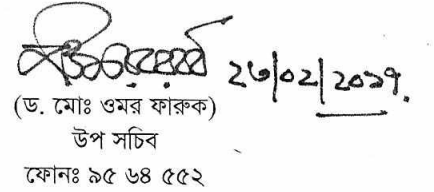 ২৬/০২/২০১৭.
(ড. মোঃ ওমর ফারুক)
উপ সচিব
ফোনঃ ৯৫ ৬৪ ৫৫২